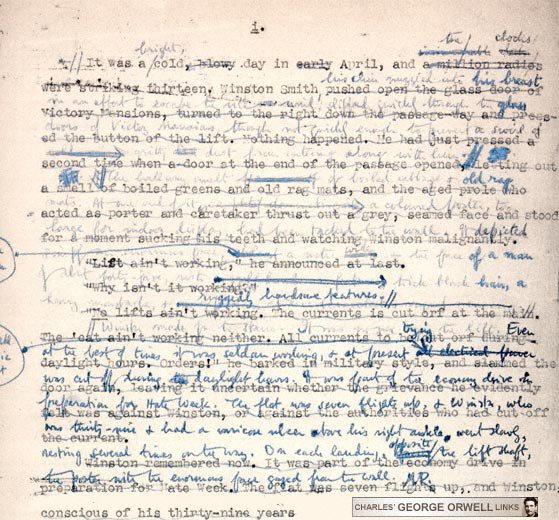 i.
bright, the clocks
It was a cold, blowy day in early April, and a million radios
his chin nuzzled into his breast
were striking thirteen. Winston Smith pushed open the glass door of
in an effort to escape the wind slipped quickly through the glass
Victory Mansions, turned to the right down the passage-way and press-
doors of Victory Mansions, though not quickly enough to prevent a swirl of
ed the button of the lift. Nothing happened. He had just pressed a
along with him
second time when a door at the end of the passage opened, letting out
The hallway smelt of boiled cabbage old rag
a smell of boiled greens and old rag mats, and the aged prole who
mats. At one end of it a coloured poster, too
acted as porter and caretaker thrust out a grey, seamed face and stood
large for indoor display, had been tacked to the wall. It depicted
for a moment sucking his teeth and watching Winston malignantly.
the face of a man
"Lift ain't working," he announced at last.
thick black hair, a
"Why isn't it working?"
heavy moustache, & ruggedly handsome features.
"No lifts ain't working. The currents is cut orf at the main.
Winston made for the stairs. It was no use trying the lift. Even
The 'eat ain't working neither. All currents to be cut orf during
at the best of times it was seldom working, & at present electrical power
daylight hours. Orders!" he barked in military style, and slammed the
was cut off during daylight hours. It was part of the economy drive in
door again, leaving it uncertain whether the grievance he evidently
preparation for Hate Week. The flat was seven flights up, & Winston, who
felt was against Winston, or against the authorities who had cut off
was thirty-nine & had a varicose ulcer above his right ankle, went slowly,
the current.
resting several times on the way. On each landing, opposite the lift shaft,
Winston remembered now. It was part of the economy drive in
the poster with the enormous face gazed from the wall.
preparation for Hate Week. The flat was seven flights up, and Winston,
conscious of his thirty-nine years
CHARLES' GEORGE ORWELL LINKS